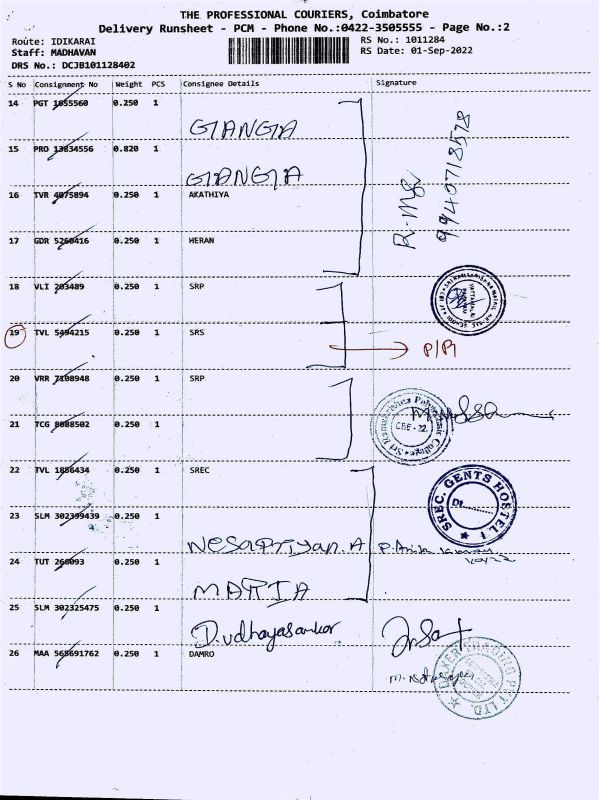 THE PROFESSIONAL COURIERS, Coimbatore
Delivery Runsheet - PCM - Phone No.:0422-3505555 - Page No.:2
Route: IDIKARAI
Staff: MADHAVAN
DRS No.: DCJB101128402
RS No.: 1011284
RS Date: 01-Sep-2022
S No Consignment No Weight PCS Consignee Details Signature
14 PGT 1655560 0.250 1
GIANGIA
15 PRO 13834556 0.820 1
GIANGIA
16 TVR 4075894 0.250 1 AKATHIYA
R. Mg
9940718578
17 GDR 5260416 0.250 1 HERAN
18 VLI 203489 0.250 1 SRP
19 TVL 5494215 0.250 1 SRS
P/Pi
20 VRR 7108948 0.250 1 SRP
21 TCG 8088502 0.250 1
Sri Ramakrishna Polytechnic College
CBE - 22.
22 TVL 1886434 0.250 1 SREC
SREC. GENTS HOSTEL. 1
Dt
23 SLM 302399439 0.250 1
Nesapriyan. A
24 TUT 266093 0.250 1
MARIA
25 SLM 302325475 0.250 1
D. Udhayasankar
26 MAA 565691762 0.250 1 DAMRO